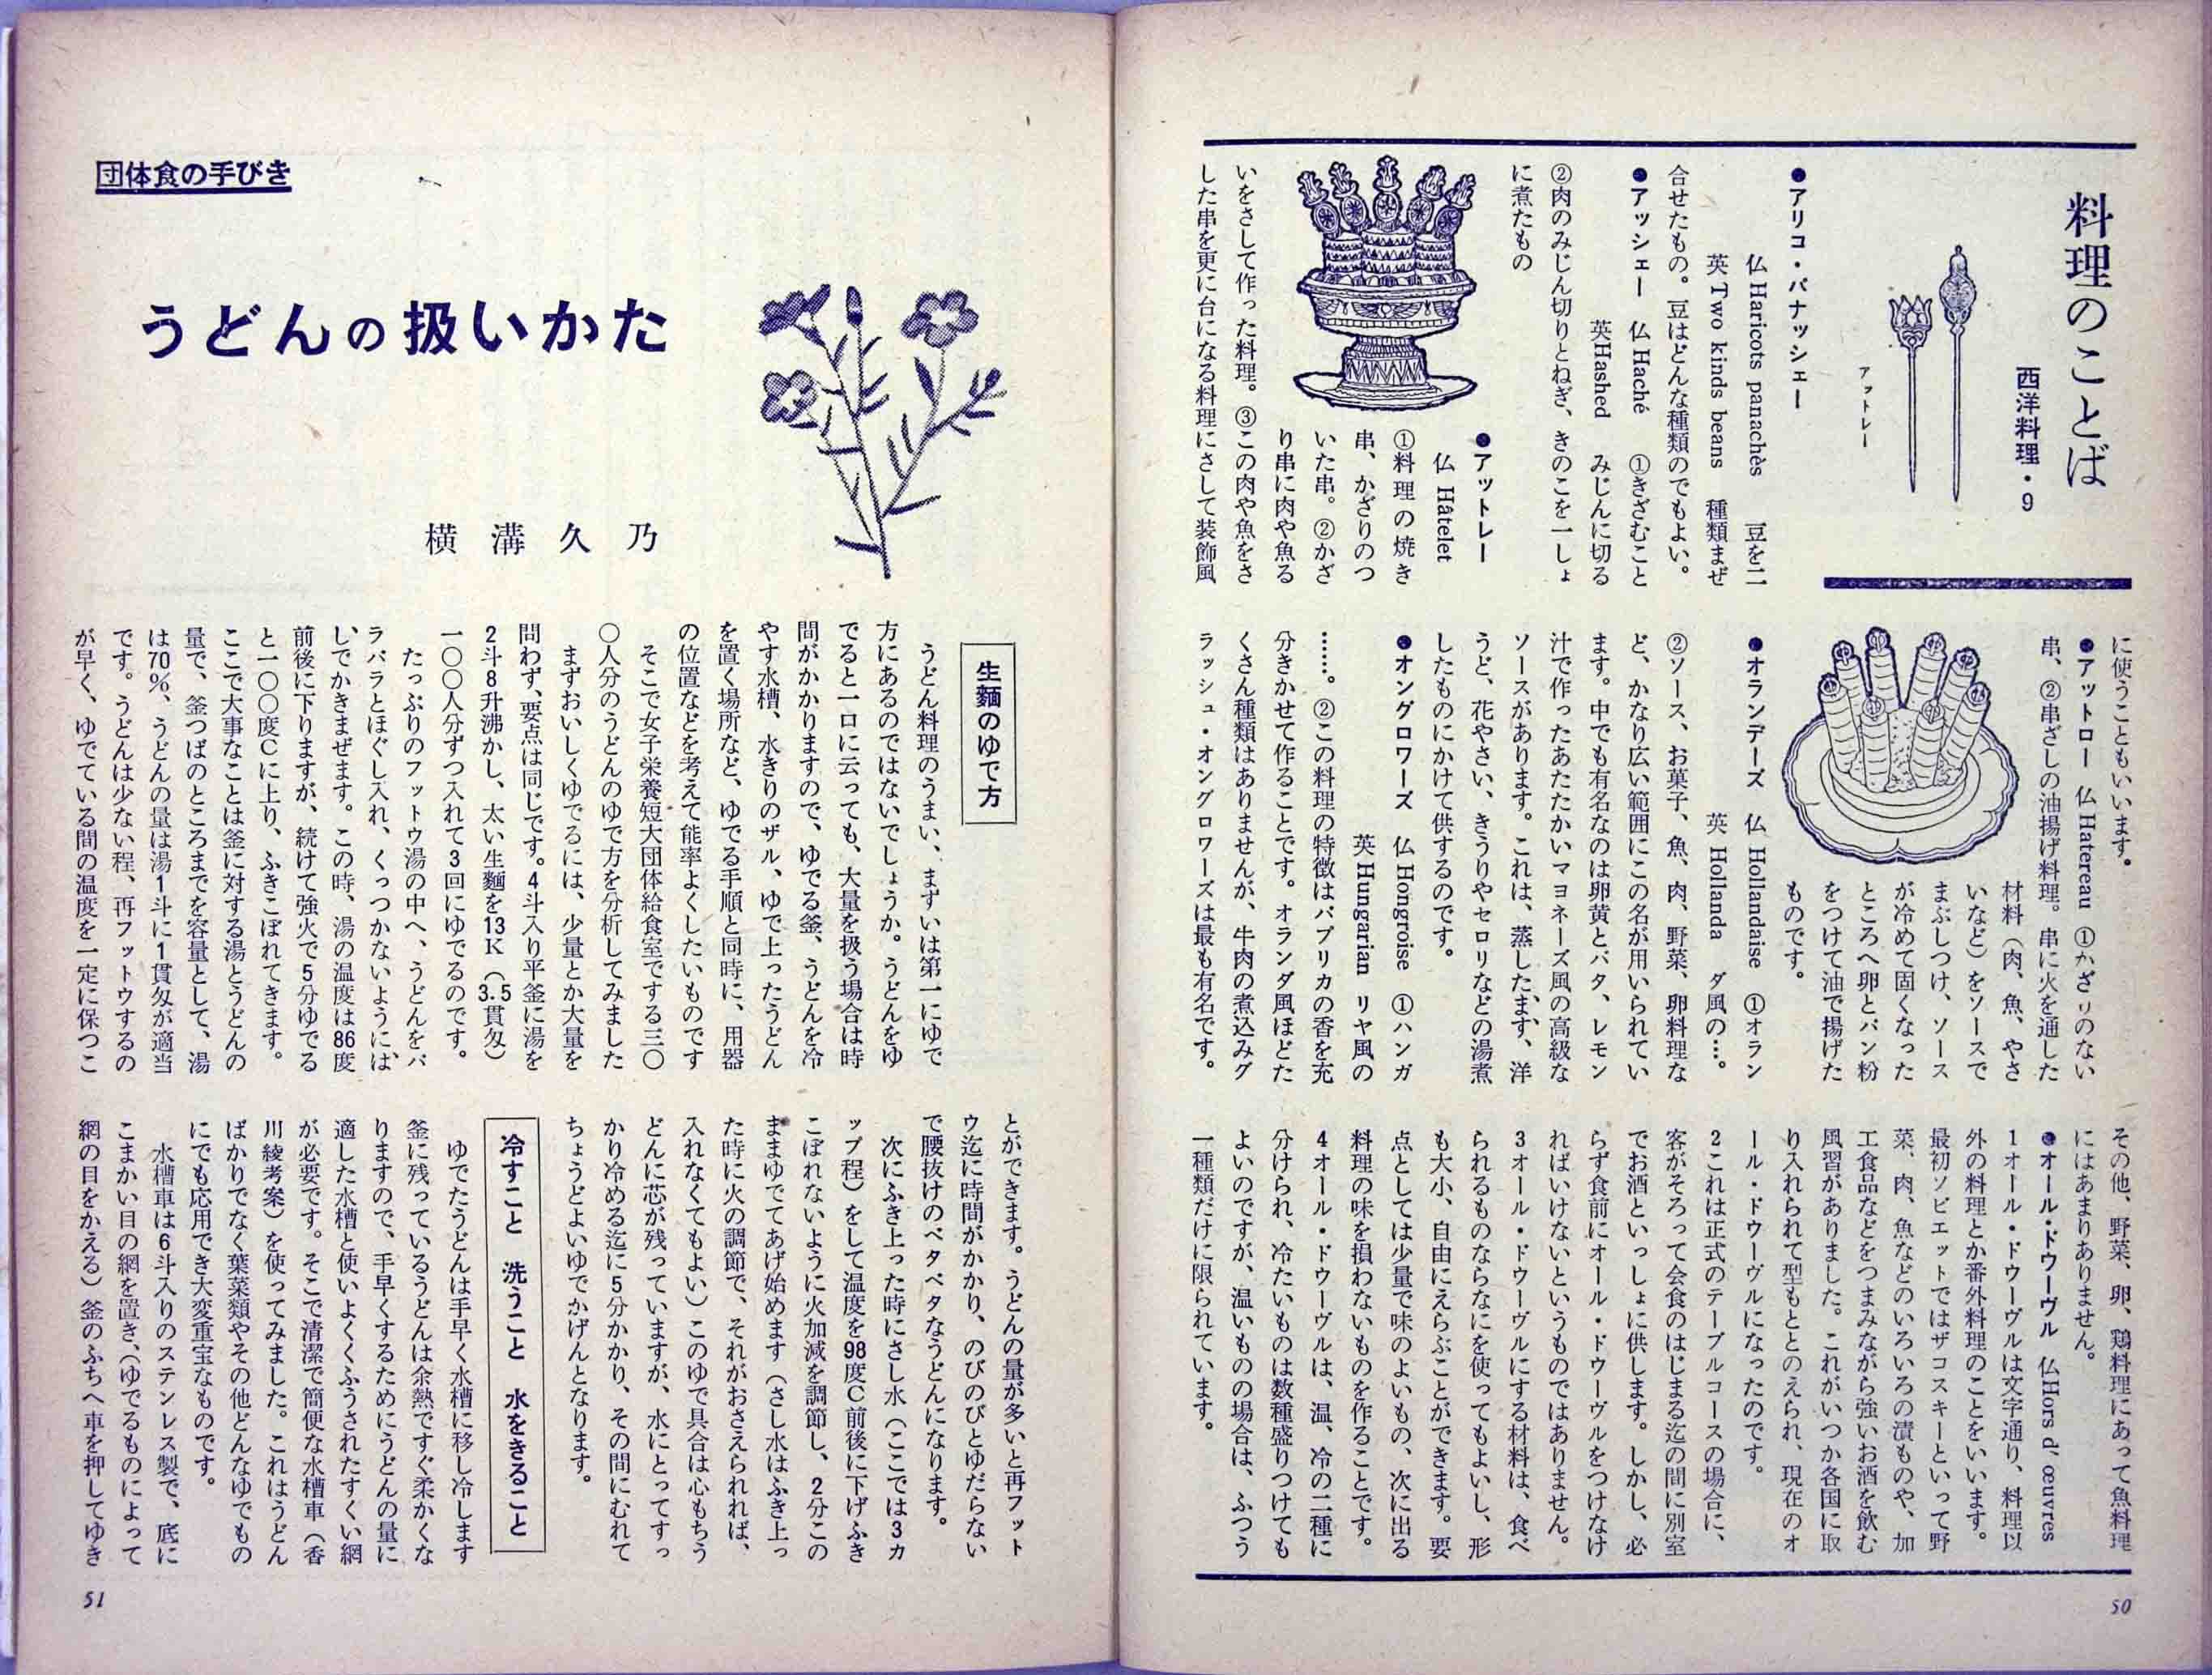 料理のことば
西洋料理・9
アットレー
●アリコ・パナッシェー
仏 Haricots panachès 豆を二
英 Two kinds beans 種類まぜ
合せたもの。豆はどんな種類のでもよい。
●アッシェー 仏 Haché ①きざむこと
英 Hashed みじんに切る
②肉のみじん切りとねぎ、きのこを一しょ
に煮たもの
●アットレー
仏 Hâtelet
①料理の焼き
串、かざりのつ
いた串。②かざ
り串に肉や魚る
いをさして作った料理。③この肉や魚をさ
した串を更に台になる料理にさして装飾風
に使うこともいいます。
●アットロー 仏 Hatereau ①かざりのない
串、②串ざしの油揚げ料理。串に火を通した
材料(肉、魚、やさ
いなど)をソースで
まぶしつけ、ソース
が冷めて固くなった
ところへ卵とパン粉
をつけて油で揚げた
ものです。
●オランデーズ 仏 Hollandaise ①オラン
英 Hollanda ダ風の…。
②ソース、お菓子、魚、肉、野菜、卵料理な
ど、かなり広い範囲にこの名が用いられてい
ます。中でも有名なのは卵黄とバタ、レモン
汁で作ったあたたかいマヨネーズ風の高級な
ソースがあります。これは、蒸したま丶、洋
うど、花やさい、きうりやセロリなどの湯煮
したものにかけて供するのです。
●オングロワーズ 仏 Hongroise ①ハンガ
英 Hungarian リヤ風の
……。②この料理の特徴はパプリカの香を充
分きかせて作ることです。オランダ風ほどた
くさん種類はありませんが、牛肉の煮込みグ
ラッシュ・オングロワーズは最も有名です。
その他、野菜、卵、鶏料理にあって魚料理
にはあまりありません。
●オール・ドウーヴル 仏 Hors d' œuvres
1オール・ドウーヴルは文字通り、料理以
外の料理とか番外料理のことをいいます。
最初ソビエットではザコスキーといって野
菜、肉、魚などのいろいろの漬ものや、加
工食品などをつまみながら強いお酒を飲む
風習がありました。これがいつか各国に取
り入れられて型もととのえられ、現在のオ
ール・ドウーヴルになったのです。
2これは正式のテーブルコースの場合に、
客がそろって会食のはじまる迄の間に別室
でお酒といっしょに供します。しかし、必
らず食前にオール・ドウーヴルをつけなけ
ればいけないというものではありません。
3オール・ドウーヴルにする材料は、食べ
られるものならなにを使ってもよいし、形
も大小、自由にえらぶことができます。要
点としては少量で味のよいもの、次に出る
料理の味を損わないものを作ることです。
4オール・ドウーヴルは、温、冷の二種に
分けられ、冷たいものは数種盛りつけても
よいのですが、温いものの場合は、ふつう
一種類だけに限られています。
50
団体食の手びき
うどんの扱いかた
横溝久乃
生麺のゆで方
うどん料理のうまい、まずいは第一にゆで
方にあるのではないでしょうか。うどんをゆ
でると一口に云っても、大量を扱う場合は時
間がかかりますので、ゆでる釜、うどんを冷
やす水槽、水きりのザル、ゆで上ったうどん
を置く場所など、ゆでる手順と同時に、用器
の位置などを考えて能率よくしたいものです
そこで女子栄養短大団体給食室でする三〇
〇人分のうどんのゆで方を分析してみました
まずおいしくゆでるには、少量とか大量を
問わず、要点は同じです。4斗入り平釜に湯を
2斗8升沸かし、太い生麺を13K(3.5貫匁)
一〇〇人分ずつ入れて3回にゆでるのです。
たっぷりのフットウ湯の中へ、うどんをバ
ラバラとほぐし入れ、くっつかないようには
しでかきまぜます。この時、湯の温度は86度
前後に下りますが、続けて強火で5分ゆでる
と一〇〇度Cに上り、ふきこぼれてきます。
ここで大事なことは釜に対する湯とうどんの
量で、釜つばのところまでを容量として、湯
は70%、うどんの量は湯1斗に1貫匁が適当
です。うどんは少ない程、再フットウするの
が早く、ゆでている間の温度を一定に保つこ
とができます。うどんの量が多いと再フット
ウ迄に時間がかかり、のびのびとゆだらない
で腰抜けのベタベタなうどんになります。
次にふき上った時にさし水(ここでは3カ
ップ程)をして温度を98度C前後に下げふき
こぼれないように火加減を調節し、2分この
ままゆでてあげ始めます(さし水はふき上っ
た時に火の調節で、それがおさえられれば、
入れなくてもよい)このゆで具合は心もちう
どんに芯が残っていますが、水にとってすっ
かり冷める迄に5分かかり、その間にむれて
ちょうどよいゆでかげんとなります。
冷すこと 洗うこと 水をきること
ゆでたうどんは手早く水槽に移し冷します
釜に残っているうどんは余熱ですぐ柔かくな
りますので、手早くするためにうどんの量に
適した水槽と使いよくくふうされたすくい網
が必要です。そこで清潔で簡便な水槽車(香
川綾考案)を使ってみました。これはうどん
ばかりでなく葉菜類やその他どんなゆでもの
にでも応用でき大変重宝なものです。
水槽車は6斗入りのステンレス製で、底に
こまかい目の網を置き、(ゆでるものによって
網の目をかえる)釜のふちへ車を押してゆき
51